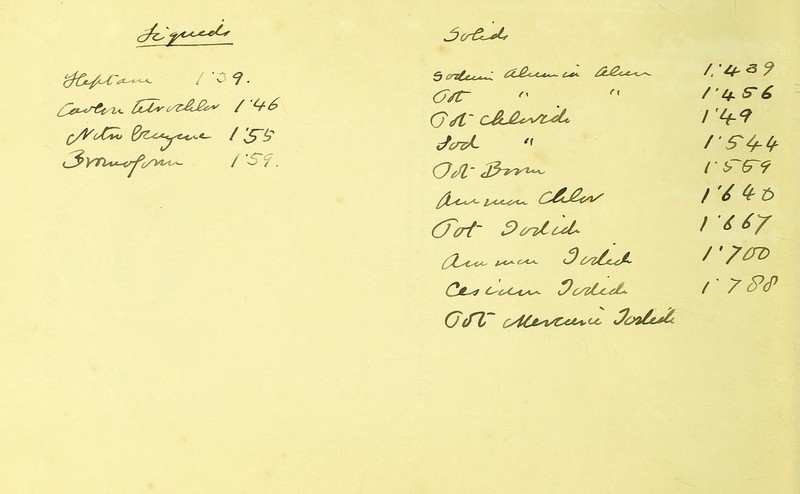 Liquids
Heptane 1·39.
Carbon tetrochlor 1·46
Nitro benzene 1·55
Bromoform 1·59.
Solids
Sodium Alumnia Alum 1·439
Pot " " 1·456
Pot Chloride 1·49
Sod " 1·544
Pot Brom 1·559
Ammon Chlor 1·640
Pot Iodide 1·667
Ammon Iodide 1·700
Cesium Iodide 1·788
Pot Mercuric Iodide